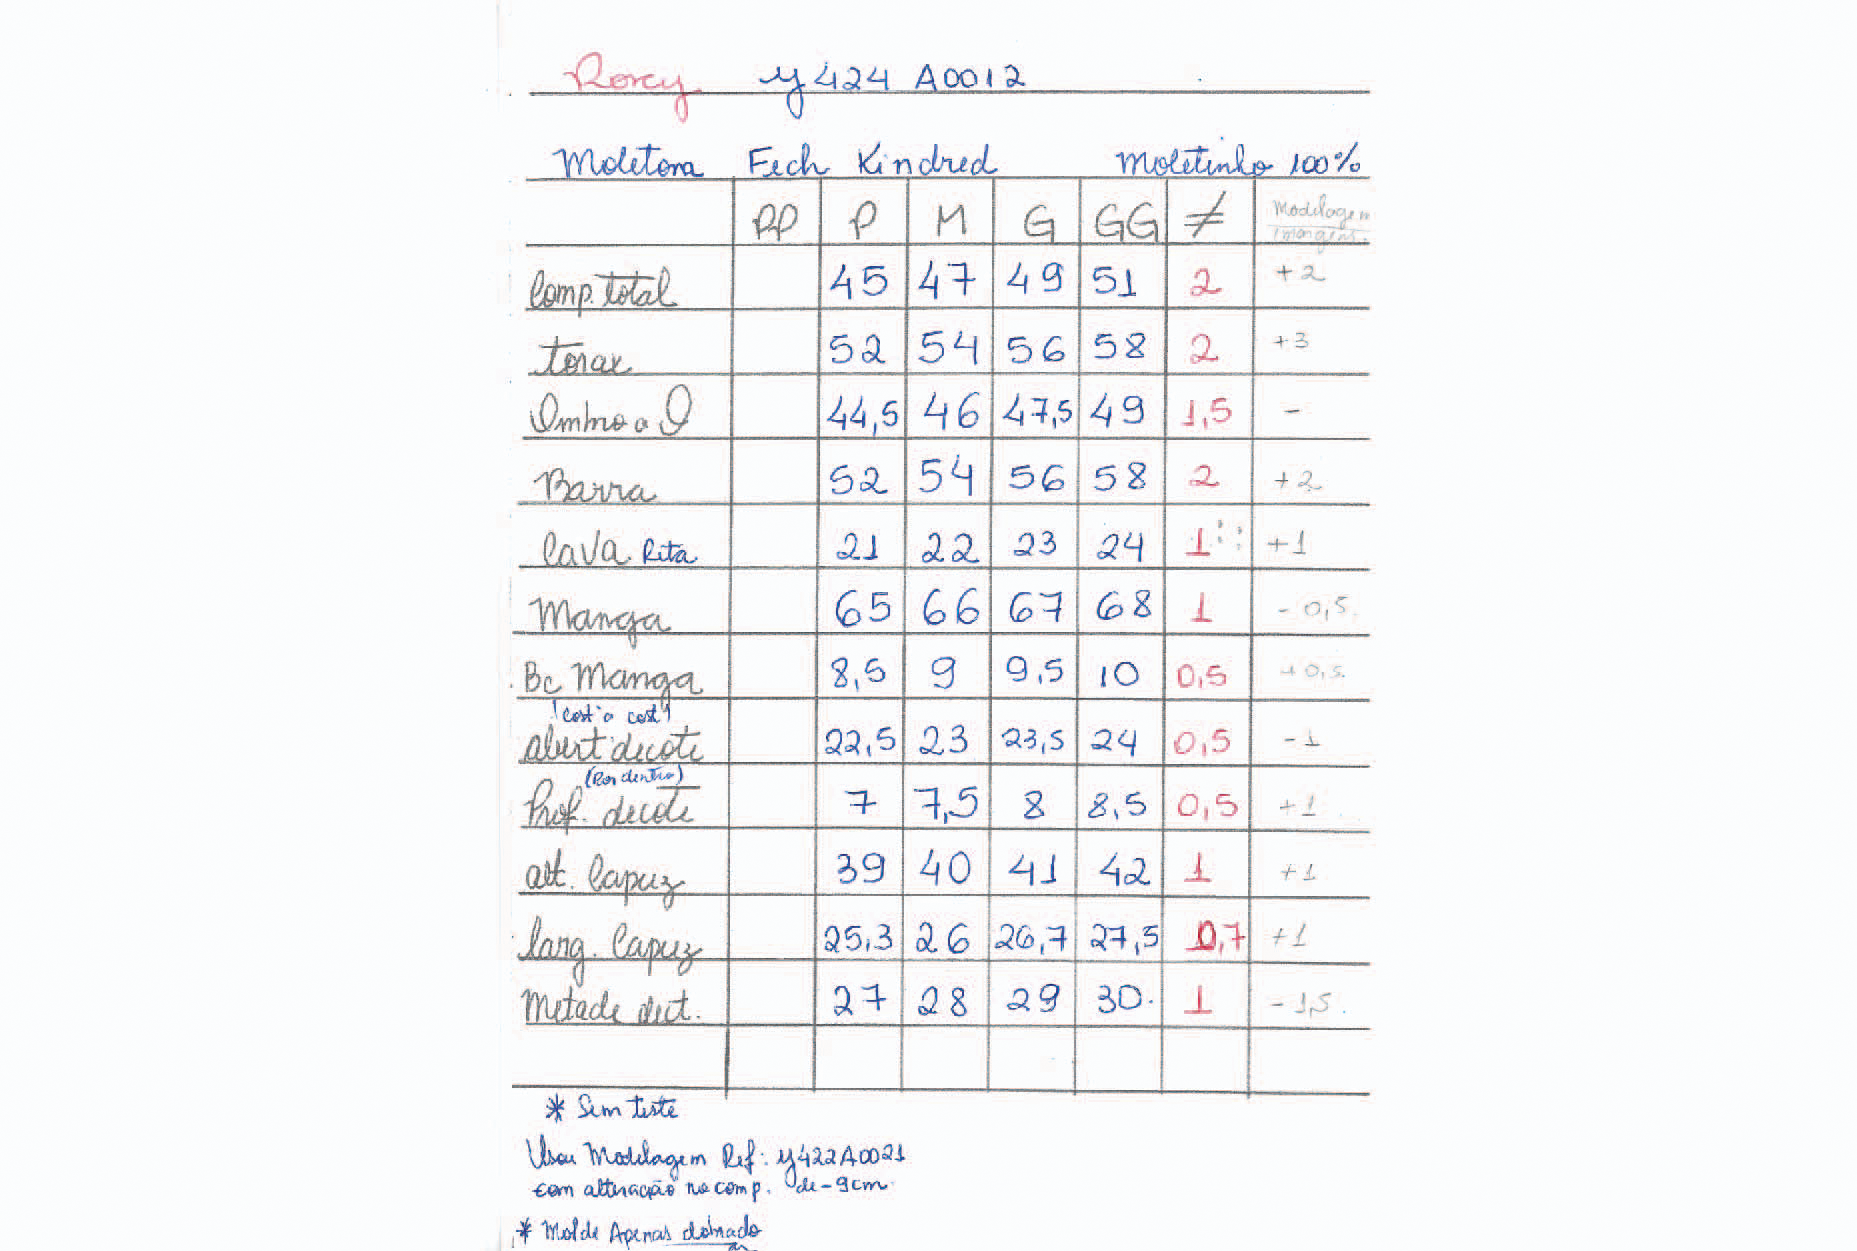 Rorcy y424 A0012
Moletom Fech Kindred Moletinho 100%
PP P M G GG ≠ Modelagem
Margens.
Comp. total 45 47 49 51 2 +2
torax 52 54 56 58 2 +3
Ombro a O 44,5 46 47,5 49 1,5 -
Barra 52 54 56 58 2 +2
Cava Reta 21 22 23 24 1 +1
Manga 65 66 67 68 1 - 0,5.
Bc Manga 8,5 9 9,5 10 0,5 +0,5.
(cost a cost)
abert decote 22,5 23 23,5 24 0,5 -1
(Por dentro)
Prof. decote 7 7,5 8 8,5 0,5 +1
alt. Capuz 39 40 41 42 1 +1
larg. Capuz 25,3 26 26,7 27,5 0,7 +1
Metade dect. 27 28 29 30. 1 - 1,5.
* Sem teste
Usou Modelagem Ref: y422A0021
com alteração no comp. de -9cm.
* Molde Apenas dobrado